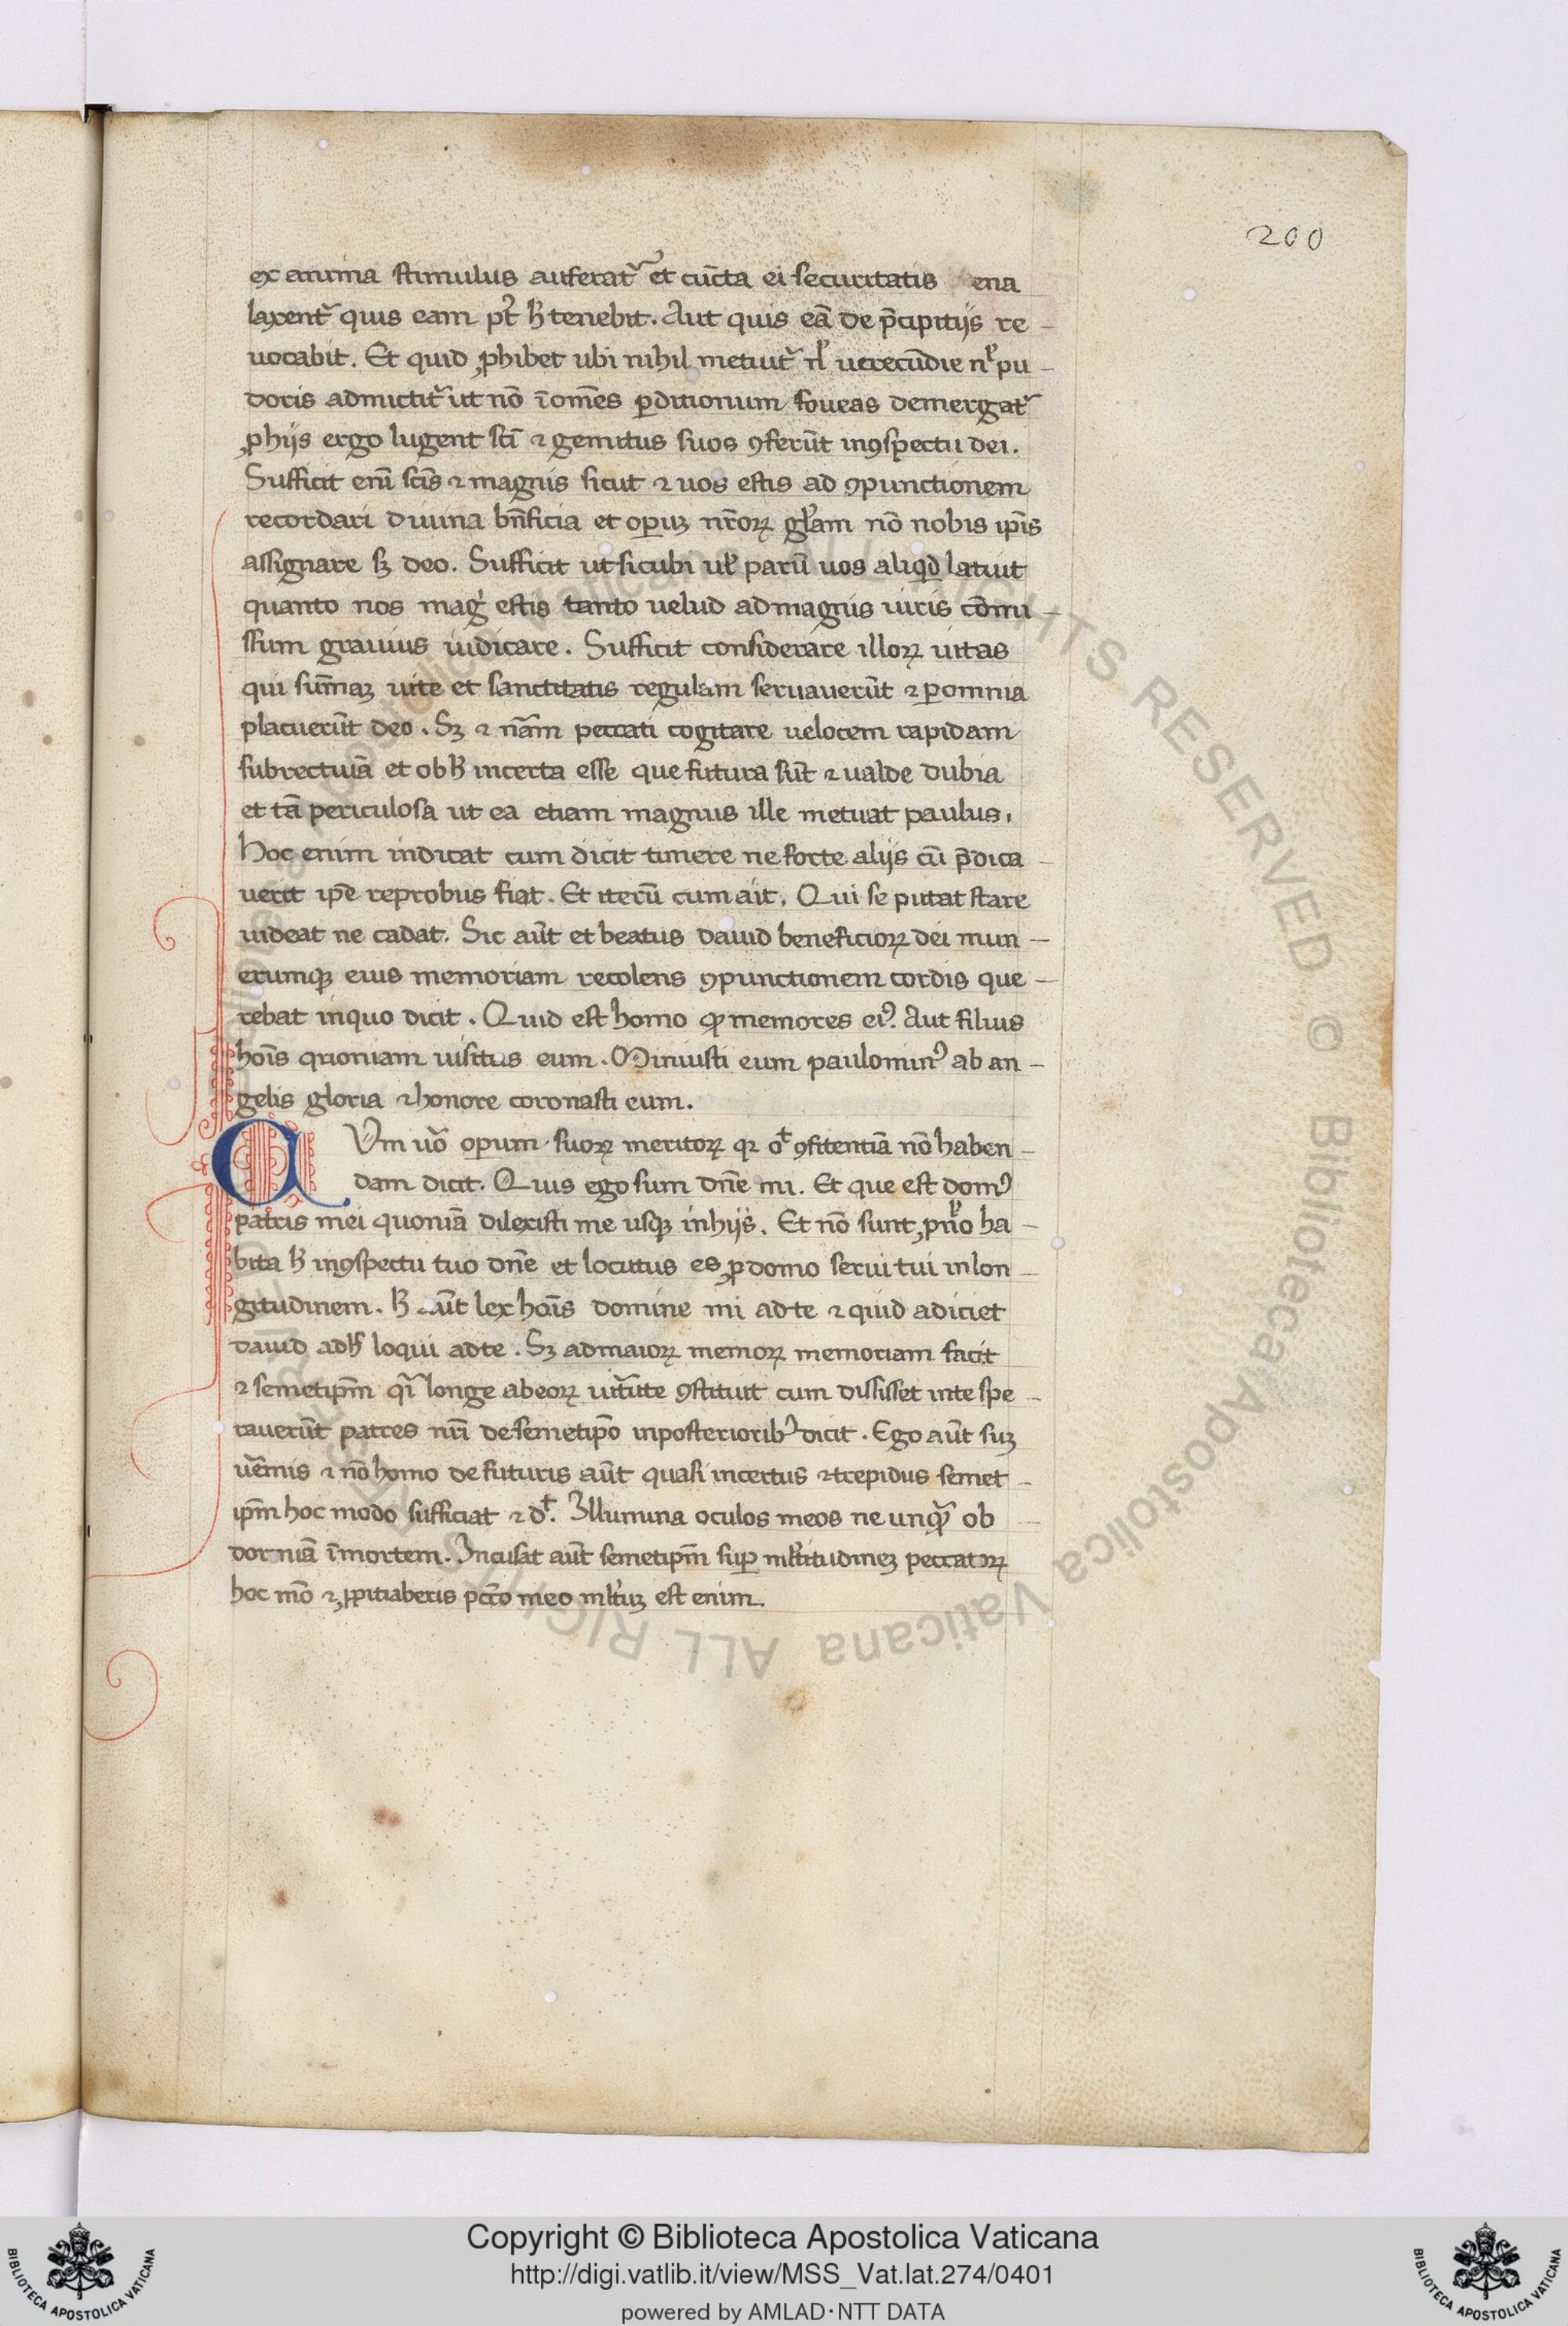 200
ex anima stimulus auferat᷑ et cūcta ei securitatis ena
laxent᷑ quis eam pt̄ ħ tenebit. Aut quis eā de p̄cipitijs re-
uocabit. Et quid ꝓhibet ubi nihil metuit᷑ nl̓ uerecūdie nl̓ pu-
doris admictit᷑ ut nō īom̄es ꝑditionum foueas demergat᷑
ꝓhijs ergo lugent sc̄i ⁊ gemitus suos ꝯferūt inꝯspectu dei.
Sufficit enī sc̄is ⁊ magnis sicut ⁊ uos estis ad ꝯpunctionem
recordari diuina bn̄ficia et oꝑuꝫ nr̄oꝝ gl̓am nō nobis ip̄is
assignare sꝫ deo. Sufficit ut sicubi ul̓ parū uos aliqd̓ latuit
quanto nos mag̓ estis tanto uelud admagnis iuris cōmi-
ssum grauius iudicare. Sufficit considerare illoꝝ uitas
qui sum̄aꝫ uite et sanctitatis regulam seruauerūt ⁊ ꝑomnia
placuerūt deo. Sꝫ ⁊ nām peccati cogitare uelocem rapidam
subrectuiā et obħ incerta esse que futura sūt ⁊ ualde dubia
et tā periculosa ut ea etiam magnus ille metuat paulus.
hoc enim indicat cum dicit timere ne forte alijs cū p̄dica-
uerit ip̄e reprobus fiat. Et iterū cum ait. Qui se putat stare
uideat ne cadat. Sic aūt et beatus dauid beneficioꝝ dei mun-
erumqꝫ eius memoriam recolens ꝯpunctionem cordis que-
rebat inquo dicit. Quid est homo ꝙ memores eiꝰ. Aut filius
hoīs quoniam uisitas eum. Minuisti eum paulominꝰ ab an-
gelis gloria ⁊honore coronasti eum.
CUm uō opum suoꝝ meritoꝝ qꝛ ꝯfitentiā nō haben-
dam dicit. Quis ego sum dn̄e mi. Et que est domꝰ
patris mei quoniā dilexisti me usqꝫ inhijs. Et nō sunt ha-
bita ħ inꝯspectu tuo dn̄e et locutus es ꝓdomo serui tui inlon-
gitudinem. ħ aūt lex hoīs domine mi adte ⁊ quid adiciet
dauid adħ loqui adte. Sꝫ admaioꝝ memoꝝ memoriam facit
⁊ semetip̄m qī longe abeoꝝ uirtute ꝯstituit cum dississet inte spe-
rauerūt patres nr̄i desemetip̄o inposterioribꝰ dicit. Ego aūt suꝫ
uermis ⁊ nō homo defuturis aūt quasi incertus ⁊trepidus semet-
ip̄m hoc modo sufficiat ⁊ d̄t. Illumina oculos meos ne unqꝫ ob
dormiā īmortem. Incusat aūt semetip̄m suꝑ ml̓titudineꝫ peccatoꝝ
hoc mō ⁊ ꝓpitiaberis pcc̄o meo ml̓tuꝫ est enim.
Biblioteca Apostolica Vaticana ALL RIGHTS RESERVED ©
Copyright © Biblioteca Apostolica Vaticana
http://digi.vatlib.it/view/MSS_Vat.lat.274/0401
powered by AMLAD·NTT DATA
BIBLIOTECA APOSTOLICA VATICANA
BIBLIOTECA APOSTOLICA VATICANA